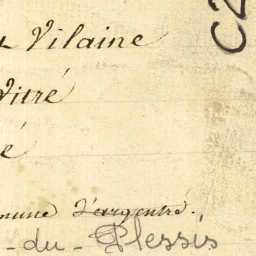 Vilaine
Vitré
é
mune d'argentré.
-du-Plessis
C2